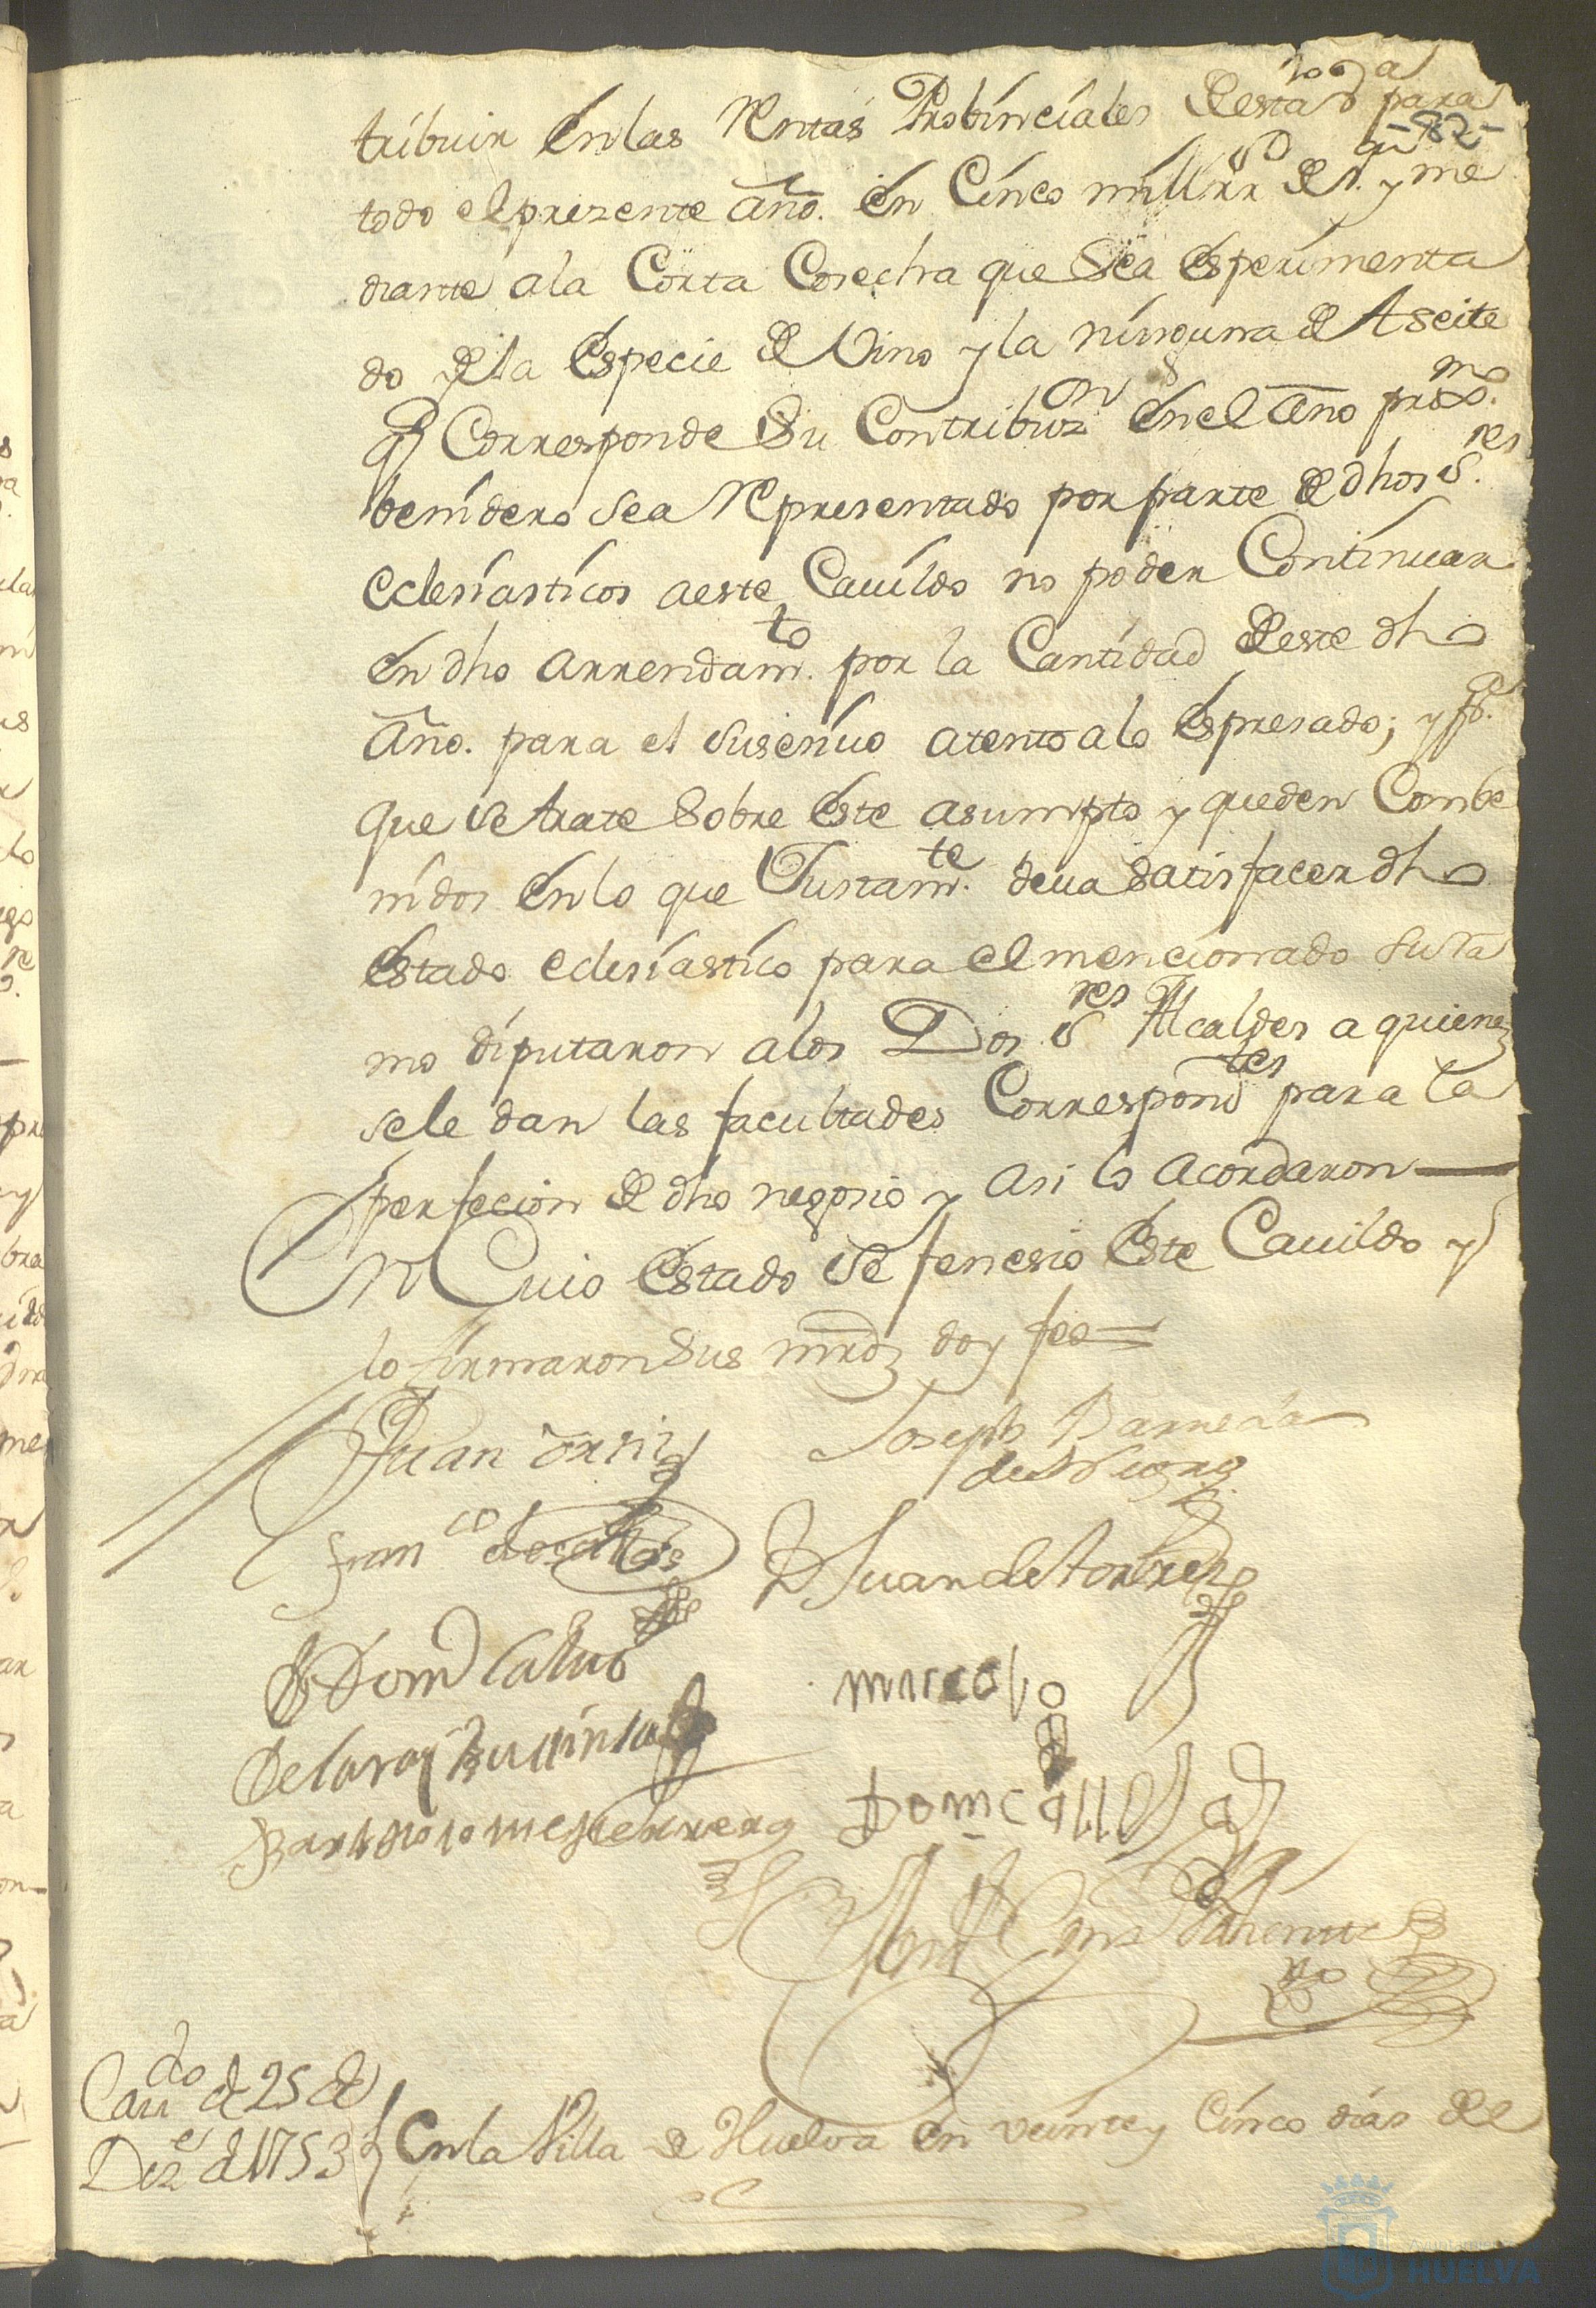 -82-
tribuir en las Rentas Probinciales de esta para
todo el prezente año. en Cinco mill rr.s de v.n y me
diante ala Corta Cosecha que Sea esperimenta
do de la especie de Vino y la ninguna de Aseite
q Corresponde Su Contribuz.on en el año prox.mo
benidero sea Representado por parte de dhos S.res
eclesiasticos a este Cauildo no poder Continuar
en dho arrendam.to por la Cantidad de este dho
año. para el susesiuo atento alo espresado; y p.a
que se trate Sobre este asumpto y queden Combe
nidos en lo que Justam.te deua Satisfacer dho
estado eclesiastico para el mencionado
mo diputaron alos Dos S.res Alcaldes a quienes
sele dan las facultades Correspond.tes para la
perfecion de dho negosio y asi lo acordaron
En Cuio estado se fenesio este Cauildo y
lo firmaron Sus mrds doy fee=
Juan Joseph
Fran.co
D Juan de
D Dom
Marcos
Bartolome Herrera
Cau.do de 25 de
Diz.e de 1753
En la Villa de Huelva en veinte y Cinco dias de
Ayuntamiento
HUELVA